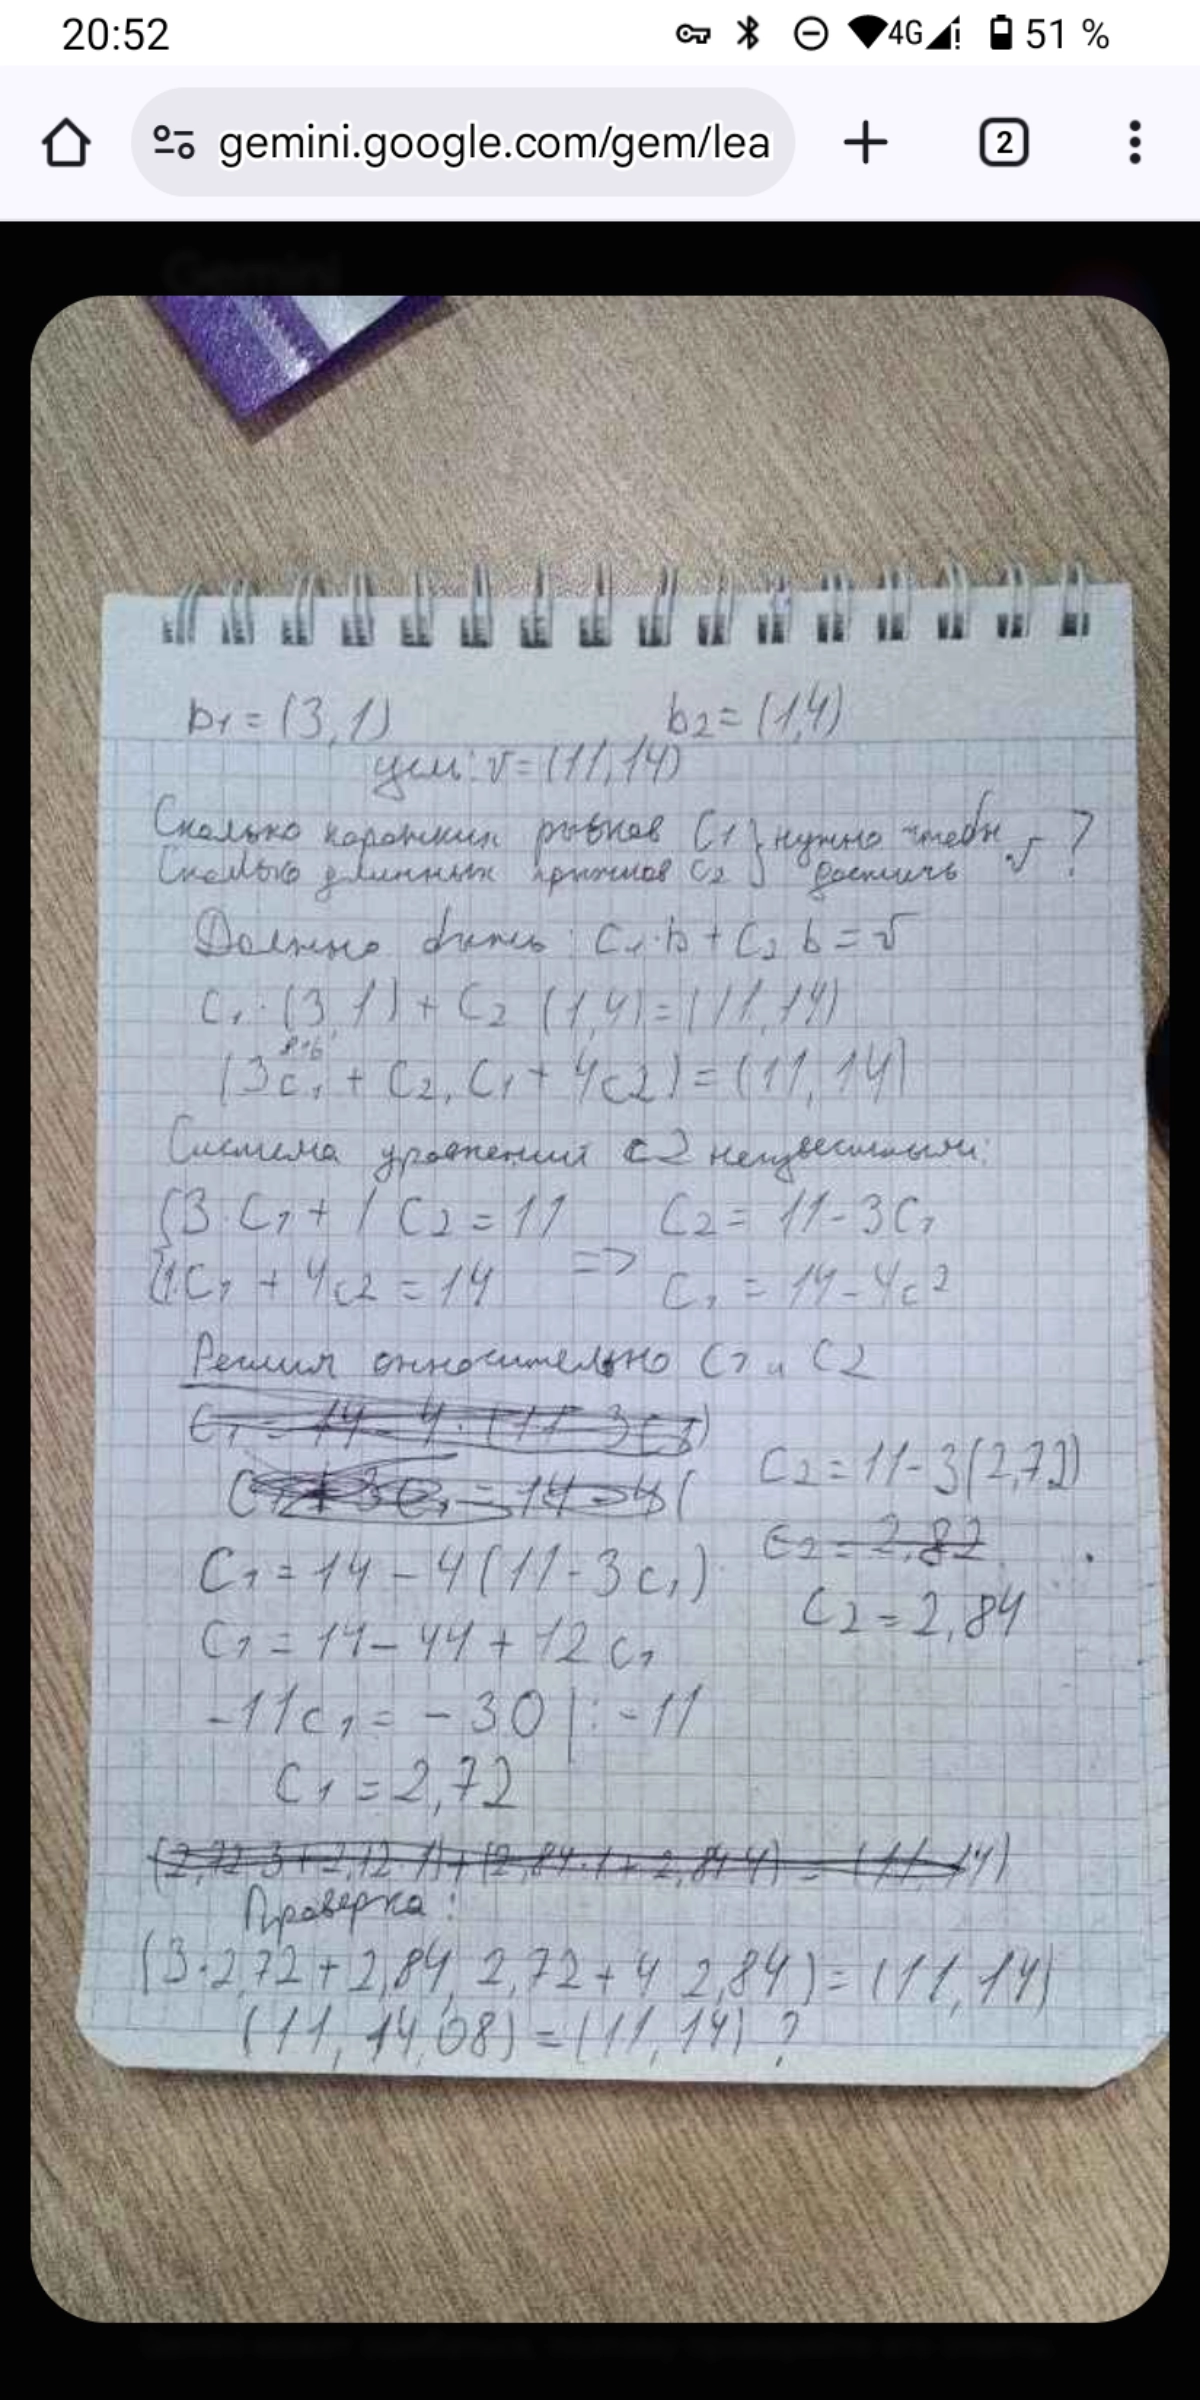 20:52
4G 51 %
gemini.google.com/gem/lea
2
b1 = (3,1) b2 = (1,4)
цель: v = (11,14)
Сколько коротких C1 } нужно чтобы
Сколько длинных прыжков C2 } достичь v ?
Должно быть: C1·b + C2 b = v
C1·(3,1) + C2 (1,4) = (11,14)
8,16
(3c1 + C2, C1 + 4c2) = (11,14)
Система уравнений с 2 неизвестными:
{3·C1 + 1 C2 = 11 C2 = 11-3C1
{1·C1 + 4c2 = 14 => C1 = 14-4c2
Решим относительно C1 и C2
C1 = 14 - 4·(11-3C1)
C2 = 11-3(2,72)
C2 = 2,82
C1 = 14 - 4(11-3c1)
C2 = 2,84
C1 = 14 - 44 + 12c1
-11c1 = -30 |: -11
C1 = 2,72
(2,72·3+2,72·1)+(2,84·1+2,84·4) = (11,14)
Проверка:
(3·2,72+2,84, 2,72+4 2,84) = (11,14)
(11, 14,08) = (11,14) ?